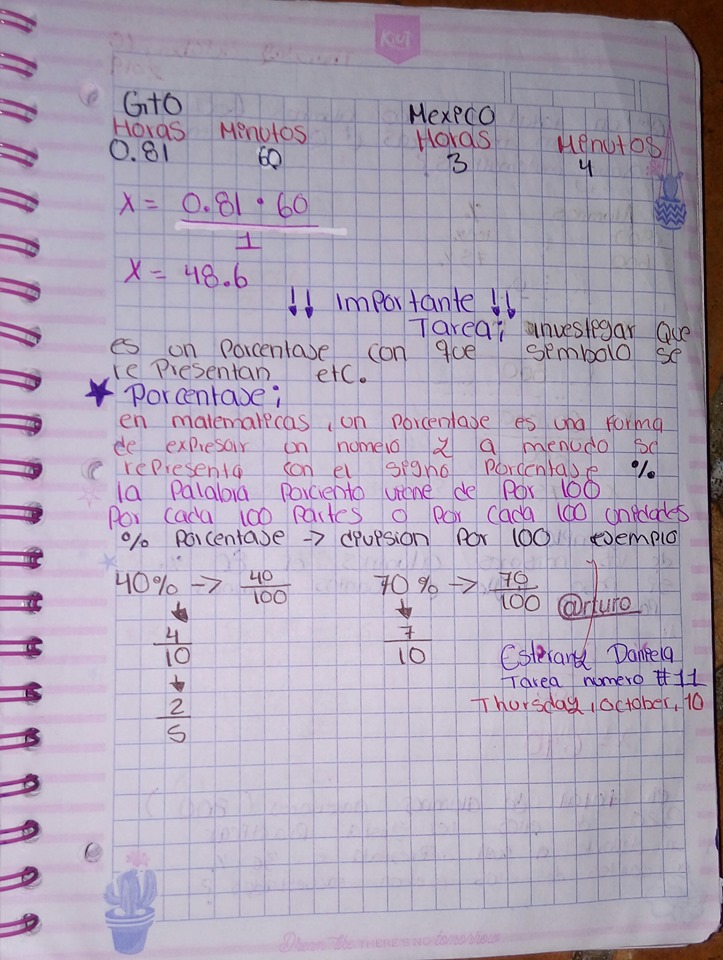 KIUT
Gto Mexico
Horas Minutos Horas Minutos
0.81 60 3 4
X = 0.81 · 60
1
X = 48.6
↓↓ Importante ↓↓
Tarea; investigar que
es un Porcentase con que simbolo se
re Presentan etc.
★ Porcentase;
en matematicas, un porcentase es una forma
de expresar un numero y a menudo se
representa con el signo Porcentase %
la Palabra Porciento viene de Por 100
Por cada 100 Partes o Por cada 100 unidades
% Porcentase → division Por 100 esemplo
40% → 40/100 70% → 70/100 @rturo
↓ ↓
4/10 7/10
↓
2/5
Estefany Daniela
Tarea numero #11
Thursday, October, 10